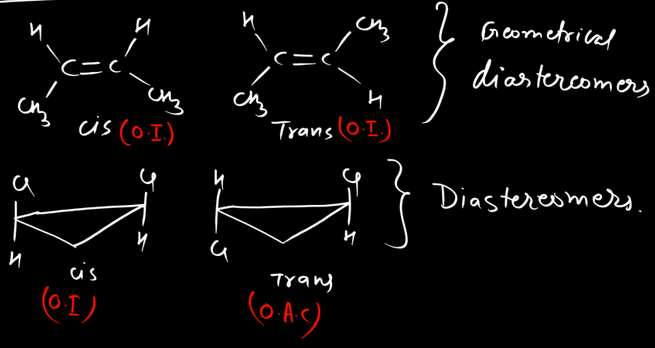 H H
C = C
CH3 CH3
cis (O.I.)
H CH3
C = C
CH3 H
Trans (O.I.)
Geometrical
diastereomers
Cl Cl
H H
cis
(O.I)
H Cl
Cl H
Trans
(O.A.C)
Diastereomers.